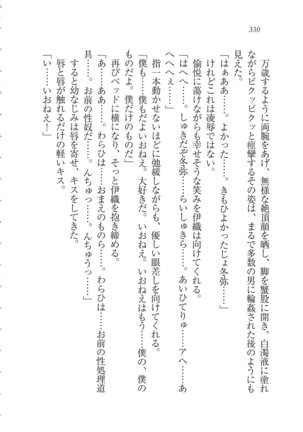 330
万歳するように両腕をあげ、無様な絶頂顔を晒し、脚を蟹股に開き、白濁液に塗れ
ながらビクッビクッと痙攣するその姿は、まるで多数の男に輪姦された後のようにも
見えた。
けれどこれは凌辱ではない。
「はぁああ……。よかった……。きもひよかったじょ冬弥……」
愉悦に蕩けながらも幸せそうな笑みを伊織は向けてくれる。
「はへぇ……。しゅきだ冬弥……らいしゅきら……。あいひてりゅ……アへ……あ
へへへぇ……」
指一本動かせないほどに弛緩しながらも、優しい眼差しを向けてくれる。
「僕も……僕もだよいおねえ。大好きだ。いおねえはもう……僕の、僕の
ものだよ。僕だけのものだ」
再びベッドに横になり、ギュッと伊織を抱き締める。
「あ……ああ……。わらひは……おまえのもの……。わらひは……お前の性処理道
具……。お前の性奴だ……。んちゅっ……。んちゅうっ……」
すると幼なじみは唇を寄せ、キスをしてきた。
唇と唇が触れるだけの軽いキス。
「い……いおねえ！」